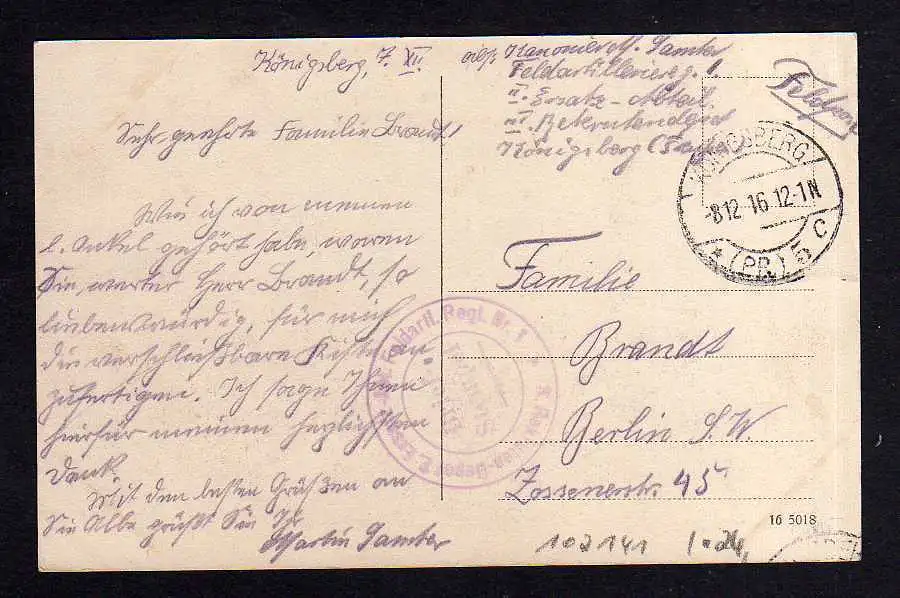 Königsberg, 7. XII.
Sehr geehrte Familie Brandt!
Wie ich von meinem
l. Onkel gehört habe, waren
Sie, werter Herr Brandt, so
liebenswürdig, für mich
die verschließbare Kiste an-
zufertigen. Ich sage Ihnen
hierfür meinen herzlichsten
Dank.
Mit den besten Grüßen an
Sie Alle grüßt Sie Ihr
Martin Samter
Kanonier M. Samter
Feldartilleriereg. 1
II. Ersatz-Abteil.
III. Rekrutendepot
Königsberg
Feldpost
KÖNIGSBERG
-8.12.16.12-1N
* (PR.) 5 C
Familie
Brandt
Berlin S.W.
Zossenerstr. 45
Feldartl. Regt. Nr. 1
16 5018
102141